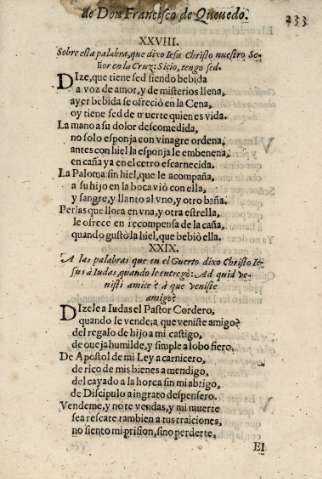 de Don Francisco de Queuedo.
233
XXVIII.
Sobre esta palabra, que dixo Iesu Christo nuestro Se-
ñor en la Cruz: Sicio, tengo sed.
DIze, que tiene sed siendo bebida
a voz de amor, y de misterios llena,
ayer bebida se ofreció en la Cena,
oy tiene sed de muerte quien es vida.
La mano a su dolor descomedida,
no solo esponja con vinagre ordena,
antes con hiel la esponja le embenena,
en caña ya en el cetro escarnecida.
La Paloma sin hiel, que le acompaña,
a su hijo en la boca vió con ella,
y sangre, y llanto al vno, y otro baña.
Perlas que llora en vna, y otra estrella,
le ofrece en recompensa de la caña,
quando gustò la hiel, que bebió ella.
XXIX.
A las palabras que en el Guerto dixo Christo Ie-
sus á Iudas, quando le entregò: Ad quid ve-
nisti amice? à que veniste
amigo?
DIzele a Iudas el Pastor Cordero,
quando le vende; a que veniste amigo?
del regalo de hijo a mi castigo,
de oueja humilde, y simple a lobo fiero.
De Apostol de mi Ley a carnicero,
de rico de mis bienes a mendigo,
del cayado a la horca sin mi abrigo,
de Discipulo a ingrato despensero.
Vendeme, y no te vendas, y mi muerte
sea rescate tambien a tus traiciones,
no siento mi prision, sino perderte,
El